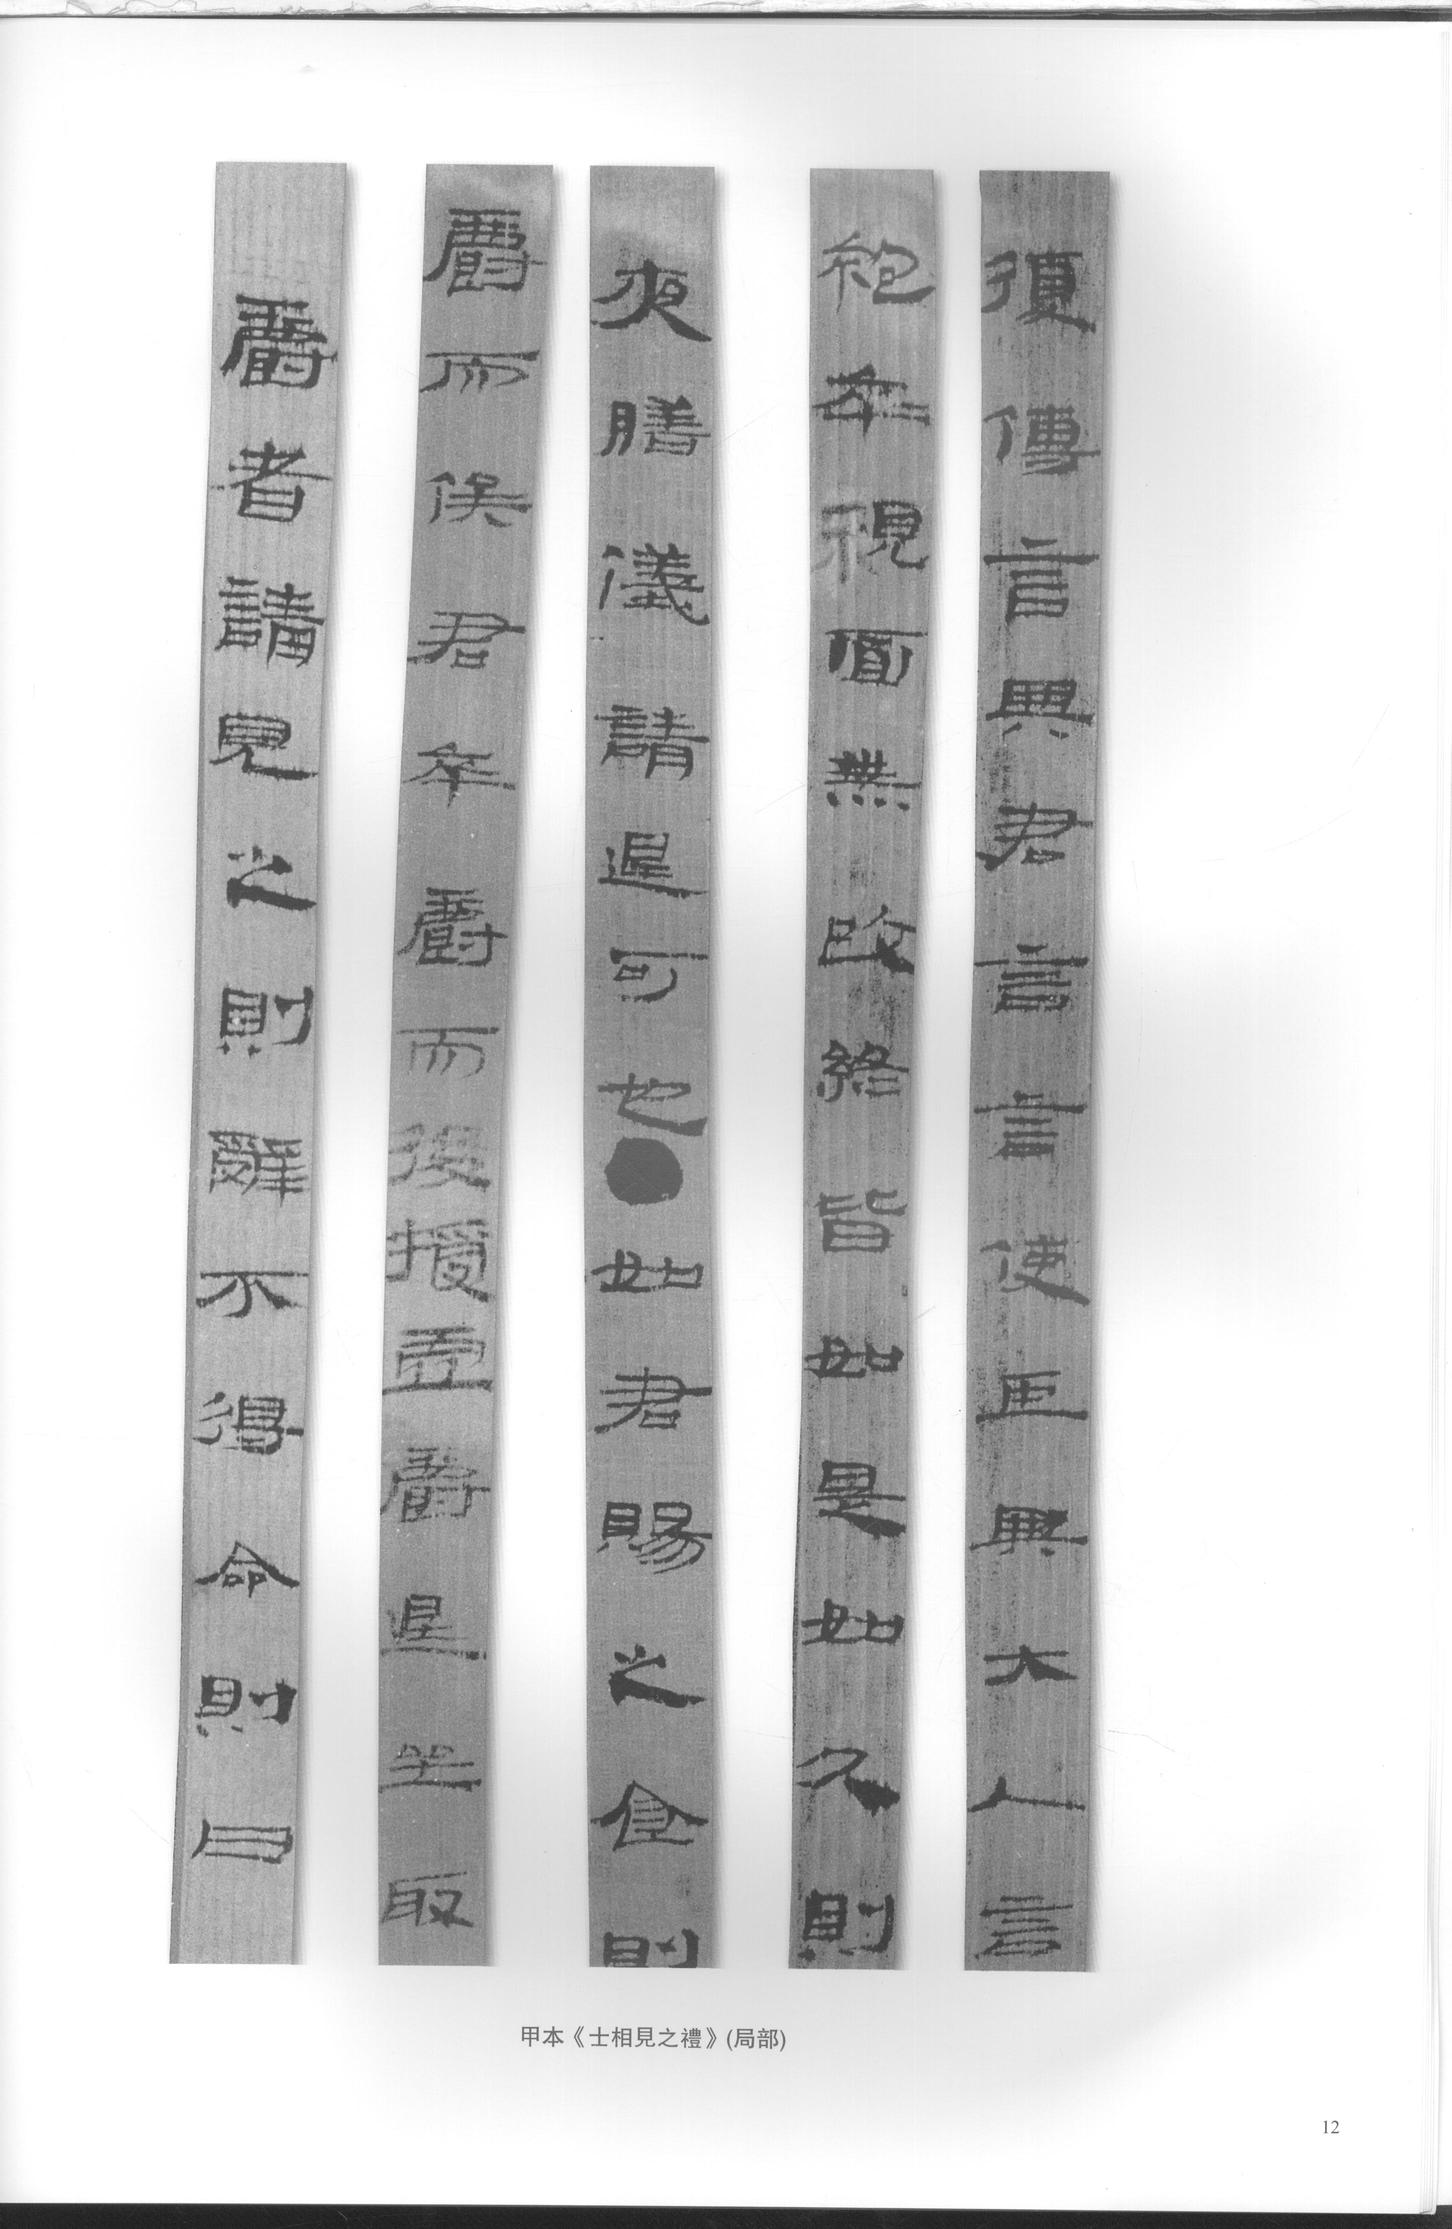 後傳言與君言言使臣與大人言
袍卒視面無改終皆如是如父則
夜膳儀請退可也●如君賜之食則
爵而俟君卒爵而後授虛爵退坐取
爵者請見之則辭不得命則曰
甲本《士相見之禮》(局部)
12